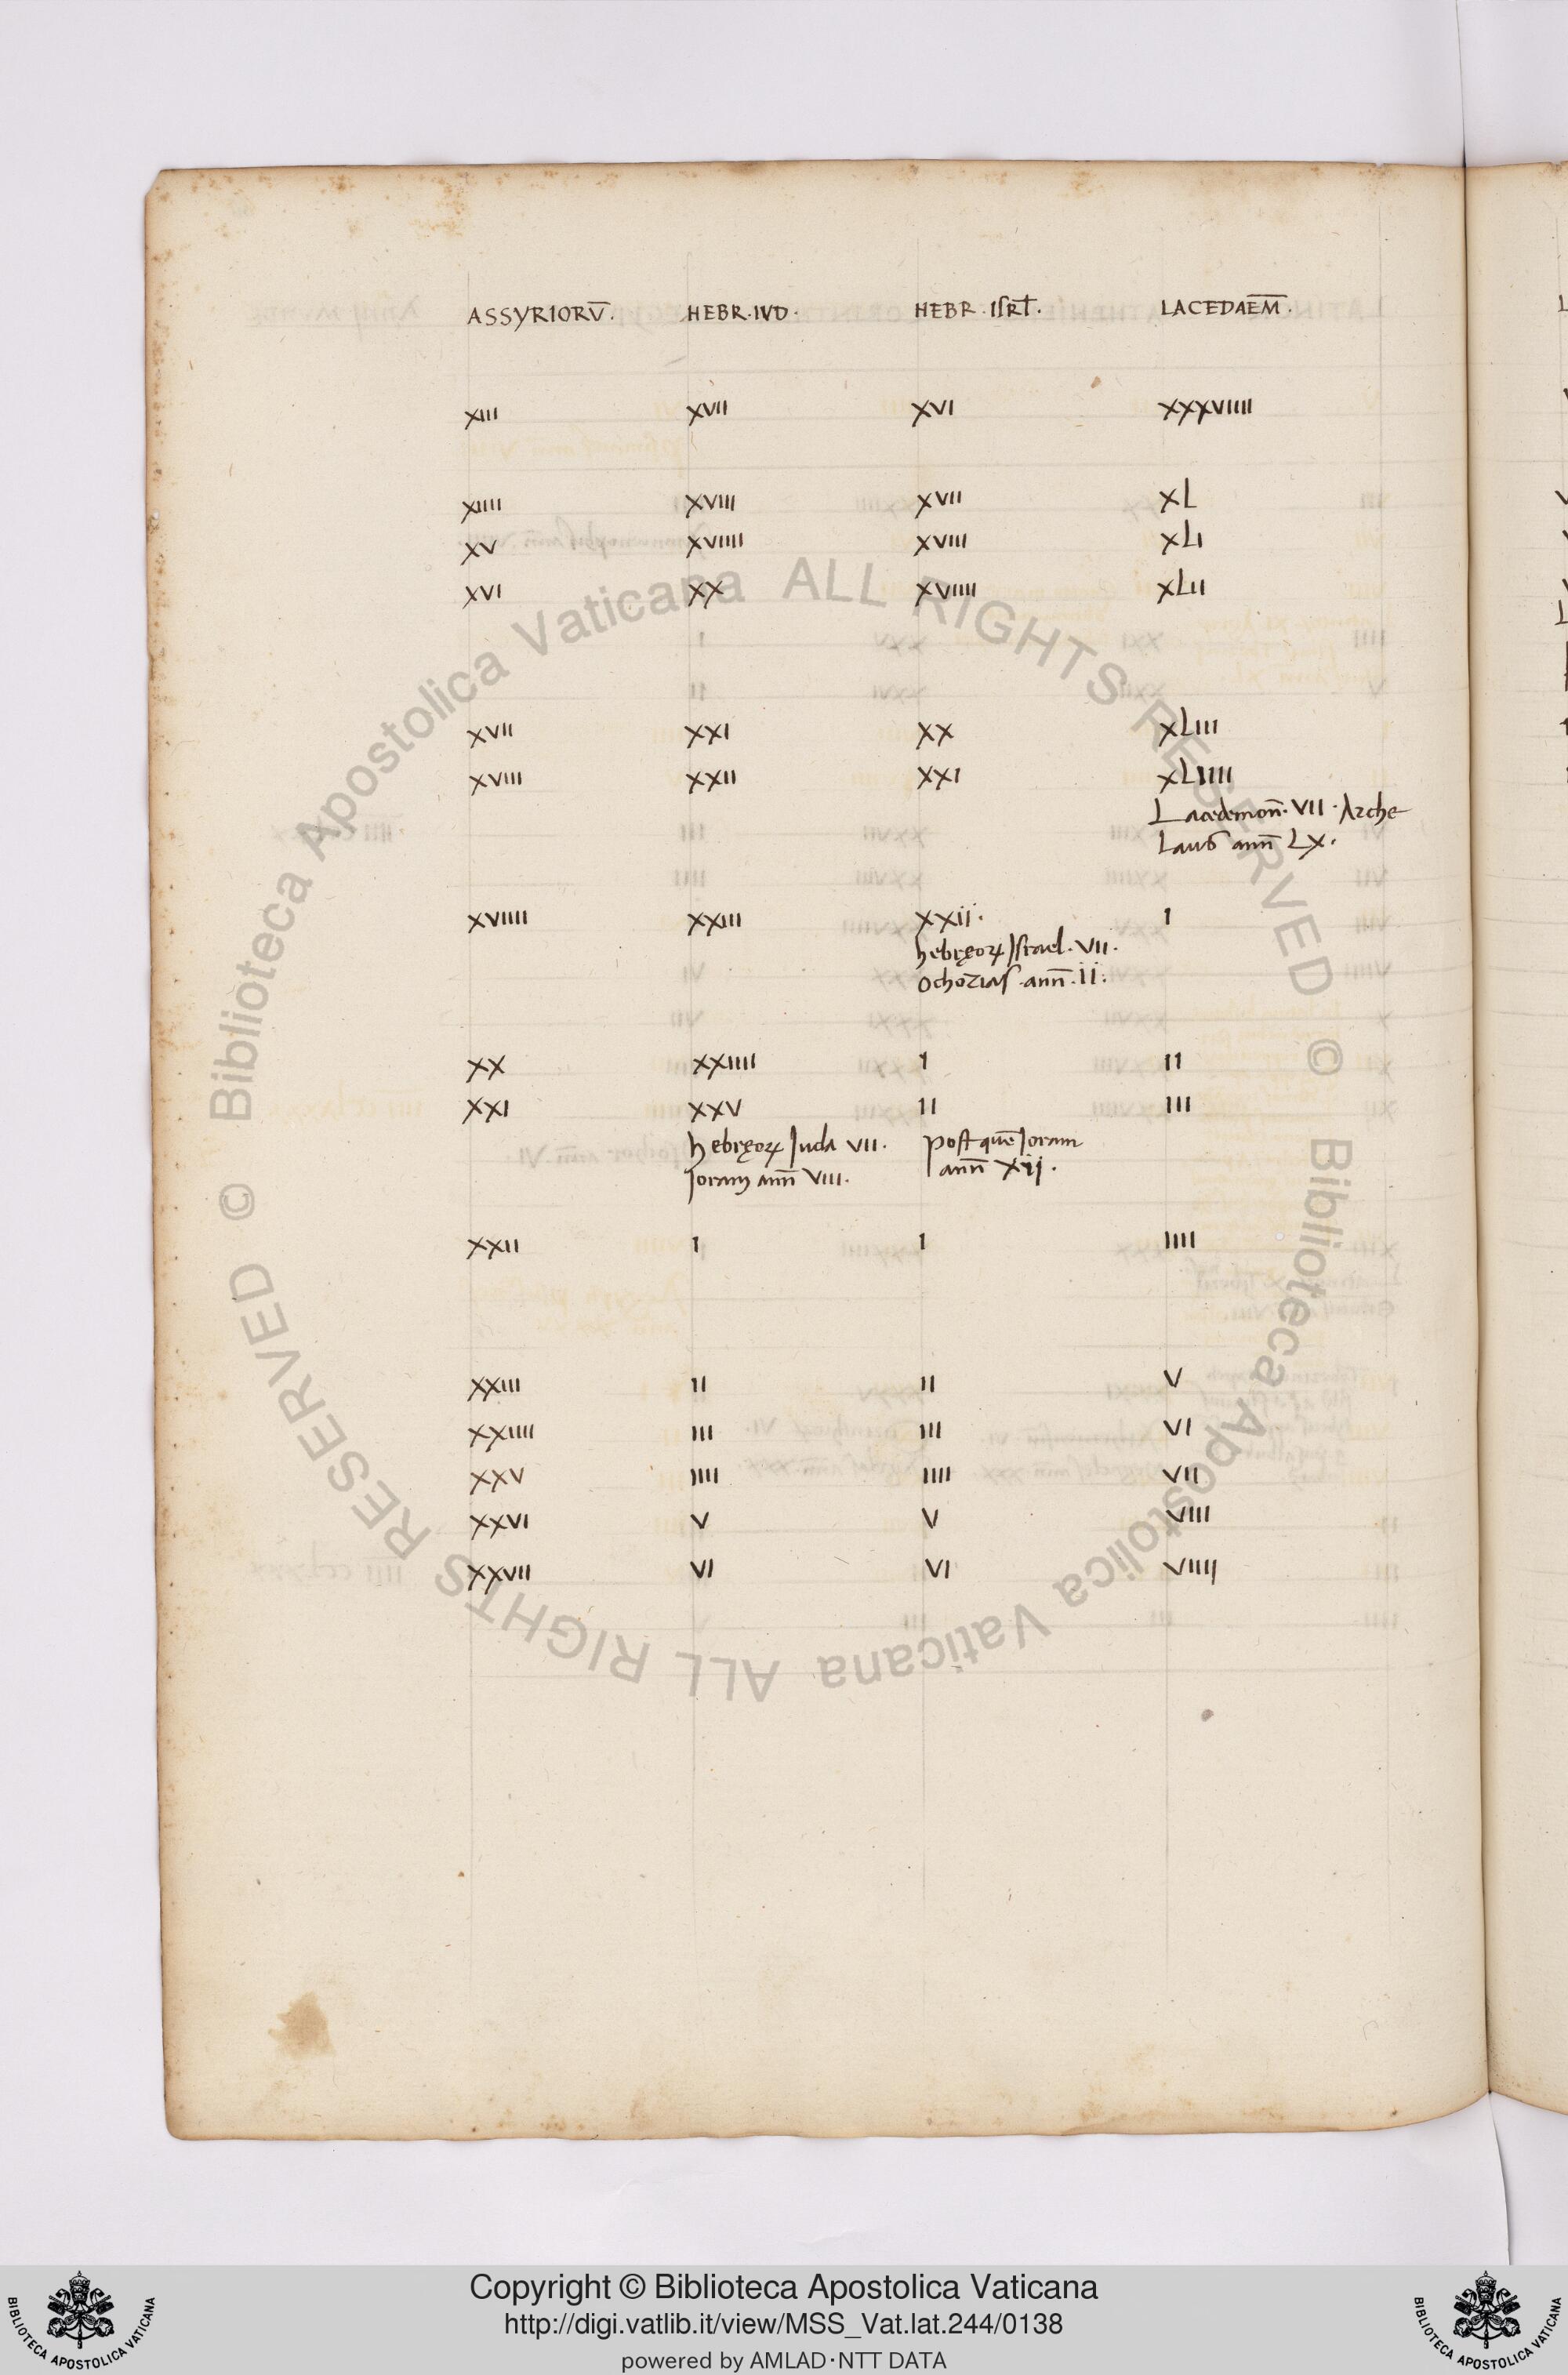 ASSYRIORV̄. HEBR.IVD. HEBR.ISRł. LACEDAEM̄.
XIII XVII XVI XXXVIIII
XIIII XVIII XVII XL
XV XVIIII XVIII XLI
XVI XX XVIIII XLII
XVII XXI XX XLIII
XVIII XXII XXI XLIIII
Lacedemon̄. VII. Arche
laus ann̄ LX.
XVIIII XXIII XXii. I
hebręoꝝ Israel. VII.
ochozias. ann̄. ii.
XX XXIIII I II
XXI XXV II III
hebręoꝝ Juda VII. post quē Joram
Joram ann̄ VIII. ann̄ Xii.
XXII I I IIII
XXIII II II V
XXIIII III III VI
XXV IIII IIII VII
XXVI V V VIII
XXVII VI VI VIIII
© Biblioteca Apostolica Vaticana ALL RIGHTS RESERVED © Biblioteca Apostolica Vaticana ALL RIGHTS RESERVED
Copyright © Biblioteca Apostolica Vaticana
http://digi.vatlib.it/view/MSS_Vat.lat.244/0138
powered by AMLAD·NTT DATA
BIBLIOTECA APOSTOLICA VATICANA
BIBLIOTECA APOSTOLICA VATICANA